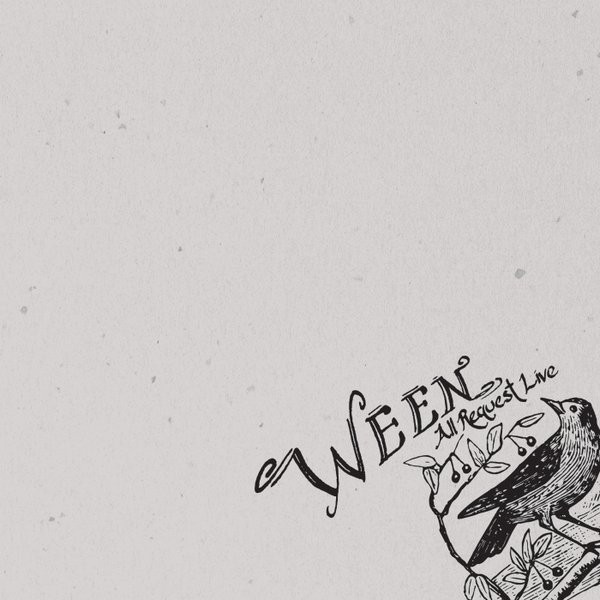 WEEN
All Request Live